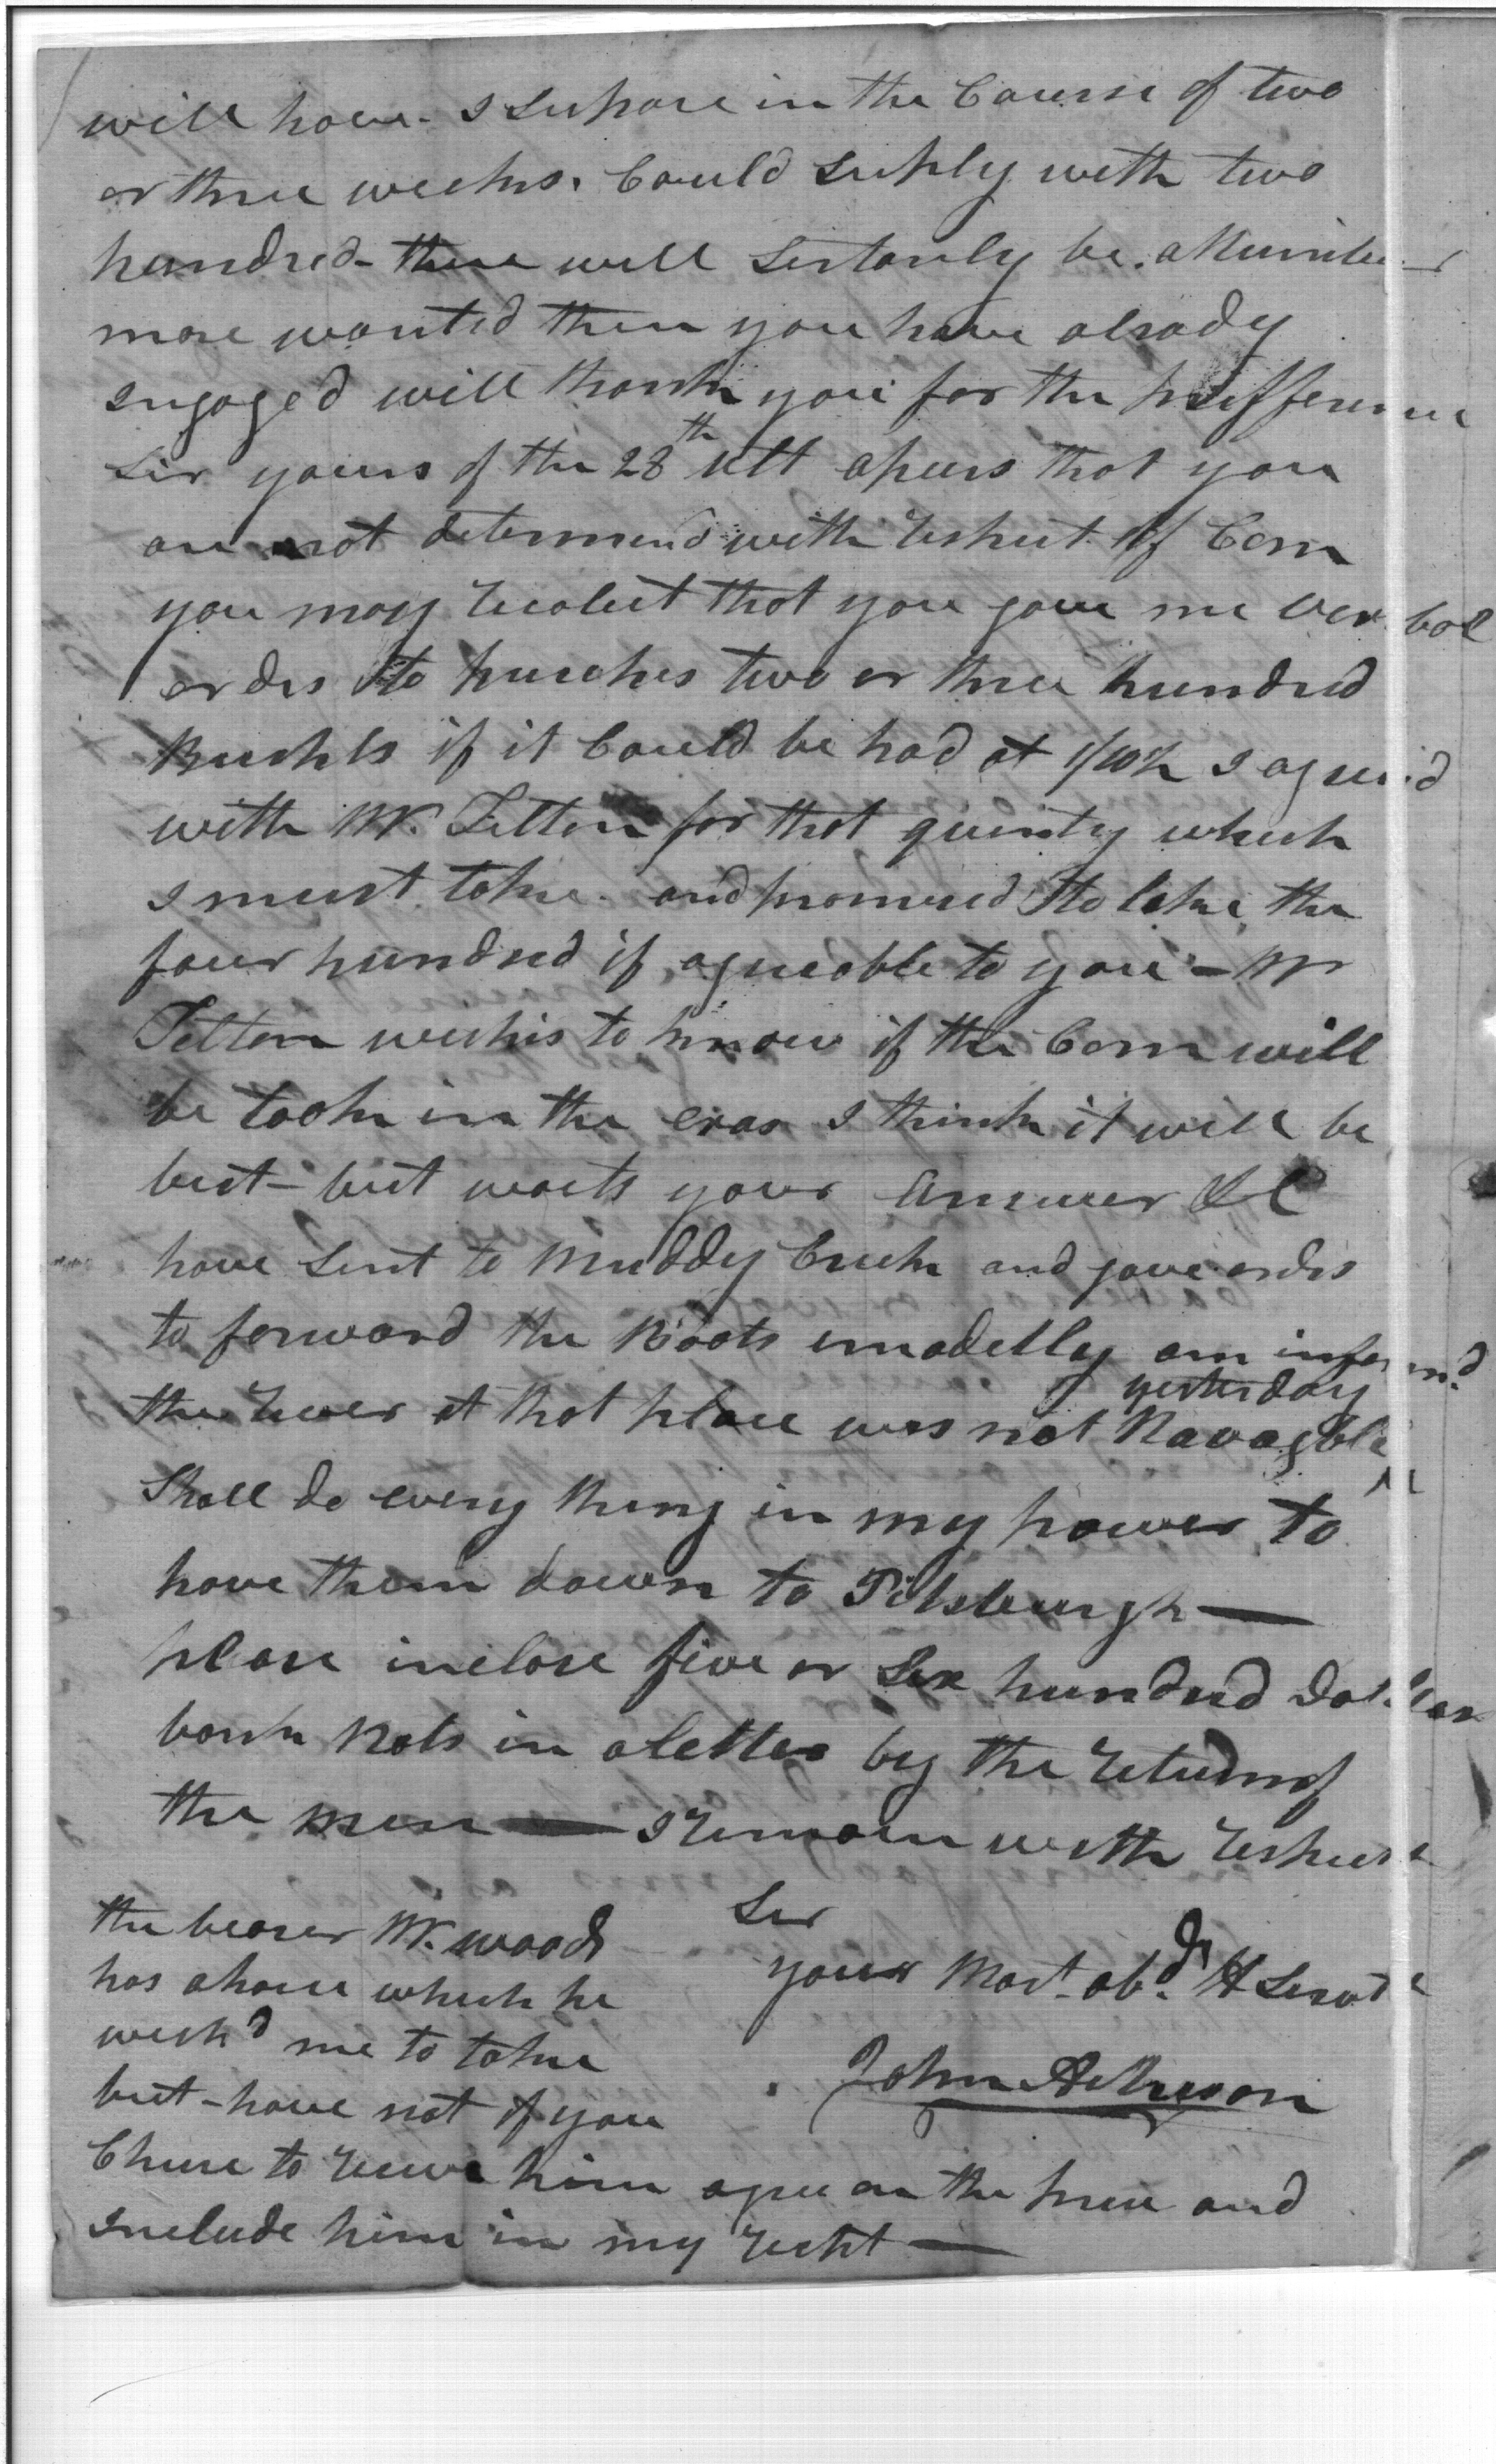 will have. I supose in the Course of two
or three weeks. Could suply with two
hundred - there will sertanly be. a Number
more wanted then you have alrady
engaged will thank you for the prefference
Sir yours of the 28th ult apeurs that you
are not determined with respect of Corn
you may recolect that you gave me verbal
ordrs to purches two or three hundred
Bushls if it Could be had at I agreed
with Mr. Felton for that quinty which
I must take. and promised to take the
four hundred if agreeable to you - Mr
Felton weshis to know if the Corn will
be took in the eras I think it will be
best - but waits your Answer &C
have sent to Muddy Creek and gave ordrs
to forward the Boats emadetly am informd
yesterday
the rever at that place was not Navagble
Shall do every thing in my power to
have them down to Pitsburgh —
pleas inclose five or Sex hundred Dollar
bank Nots in a letter by the return of
the men — I remain with respect
Sir
your Most. obd. H Servt
John
the bearer Mr. woods
has a horse which he
wesh'd me to take
but - have not if you
Chuse to receve him agree on the price and
include him in my recpt —